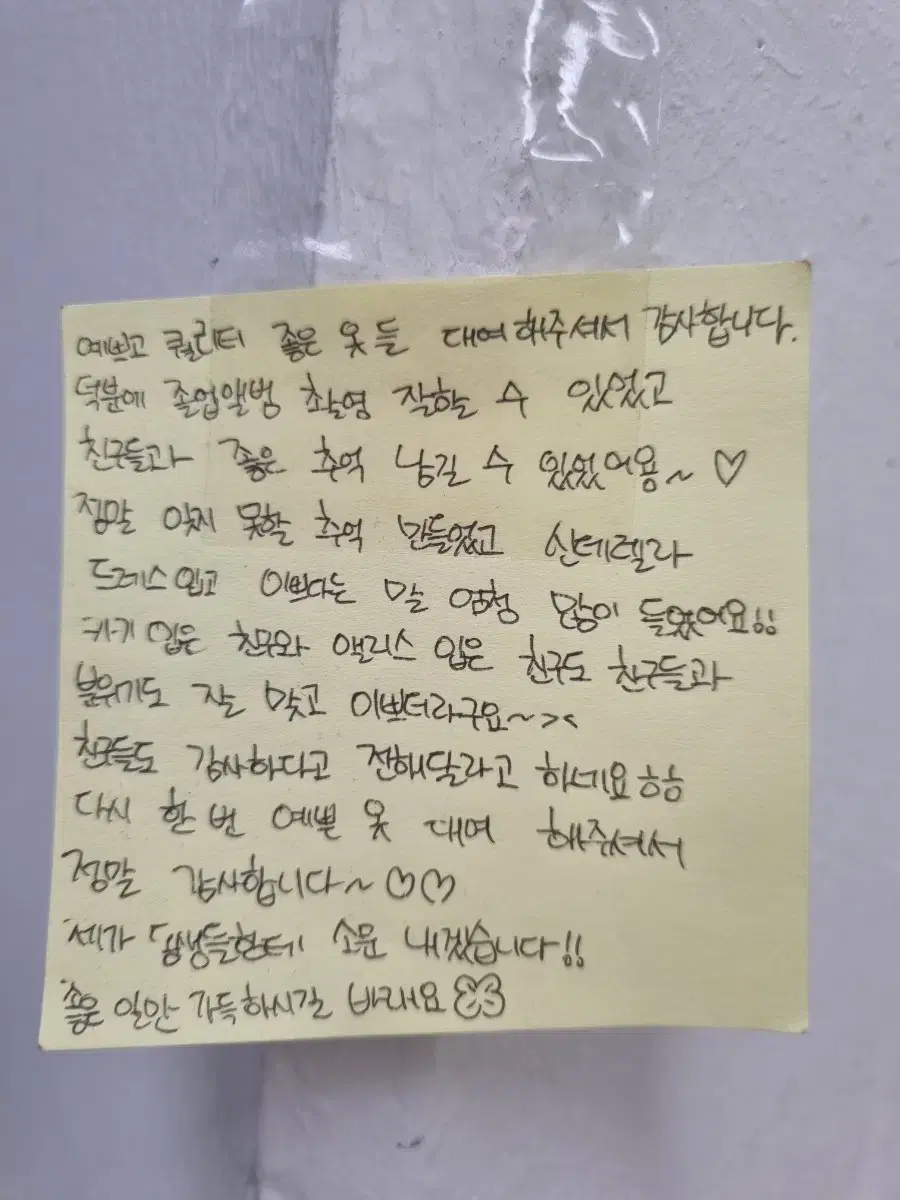 예쁘고 퀄리티 좋은 옷들 대여해주셔서 감사합니다.
덕분에 졸업앨범 촬영 잘할 수 있었고
친구들과 좋은 추억 남길 수 있었어용~ ♡
정말 잊지 못할 추억 만들었고 신데렐라
드레스 입고 이쁘다는 말 엄청 많이 들었어요!!
입은 친구와 앨리스 입은 친구도 친구들과
분위기도 잘 맞고 이쁘더라구요~><
친구들도 감사하다고 전해달라고 하네요ㅎㅎ
다시 한 번 예쁜 옷 대여 해주셔서
정말 감사합니다~♡♡
제가 소문 내겠습니다!!
좋은 일만 가득하시길 바래요